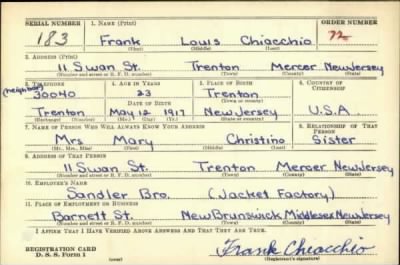 SERIAL NUMBER 1. NAME (Print) ORDER NUMBER
183 Frank Louis Chiacchio
(First) (Middle) (Last)
2. ADDRESS (Print)
11 Swan St. Trenton Mercer New Jersey
(Number and street or R. F. D. number) (Town) (County) (State)
3. TELEPHONE 4. AGE IN YEARS 5. PLACE OF BIRTH 6. COUNTRY OF CITIZENSHIP
(neighbor)
30040 23 Trenton
DATE OF BIRTH (Town or county)
Trenton May 12 1917 New Jersey U.S.A.
7. NAME OF PERSON WHO WILL ALWAYS KNOW YOUR ADDRESS 8. RELATIONSHIP OF THAT PERSON
Mrs Mary Christino Sister
(Mr., Mrs., Miss) (First) (Middle) (Last)
9. ADDRESS OF THAT PERSON
11 Swan St. Trenton Mercer New Jersey
(Number and street or R. F. D. number) (Town) (County) (State)
10. EMPLOYER'S NAME
Sandler Bro. (Jacket Factory)
11. PLACE OF EMPLOYMENT OR BUSINESS
Barnett St. New Brunswick Middlesex New Jersey
(Number and street or R. F. D. number) (Town) (County) (State)
I AFFIRM THAT I HAVE VERIFIED ABOVE ANSWERS AND THAT THEY ARE TRUE.
REGISTRATION CARD
D. S. S. Form 1 Frank Chiacchio
(Registrant's signature)